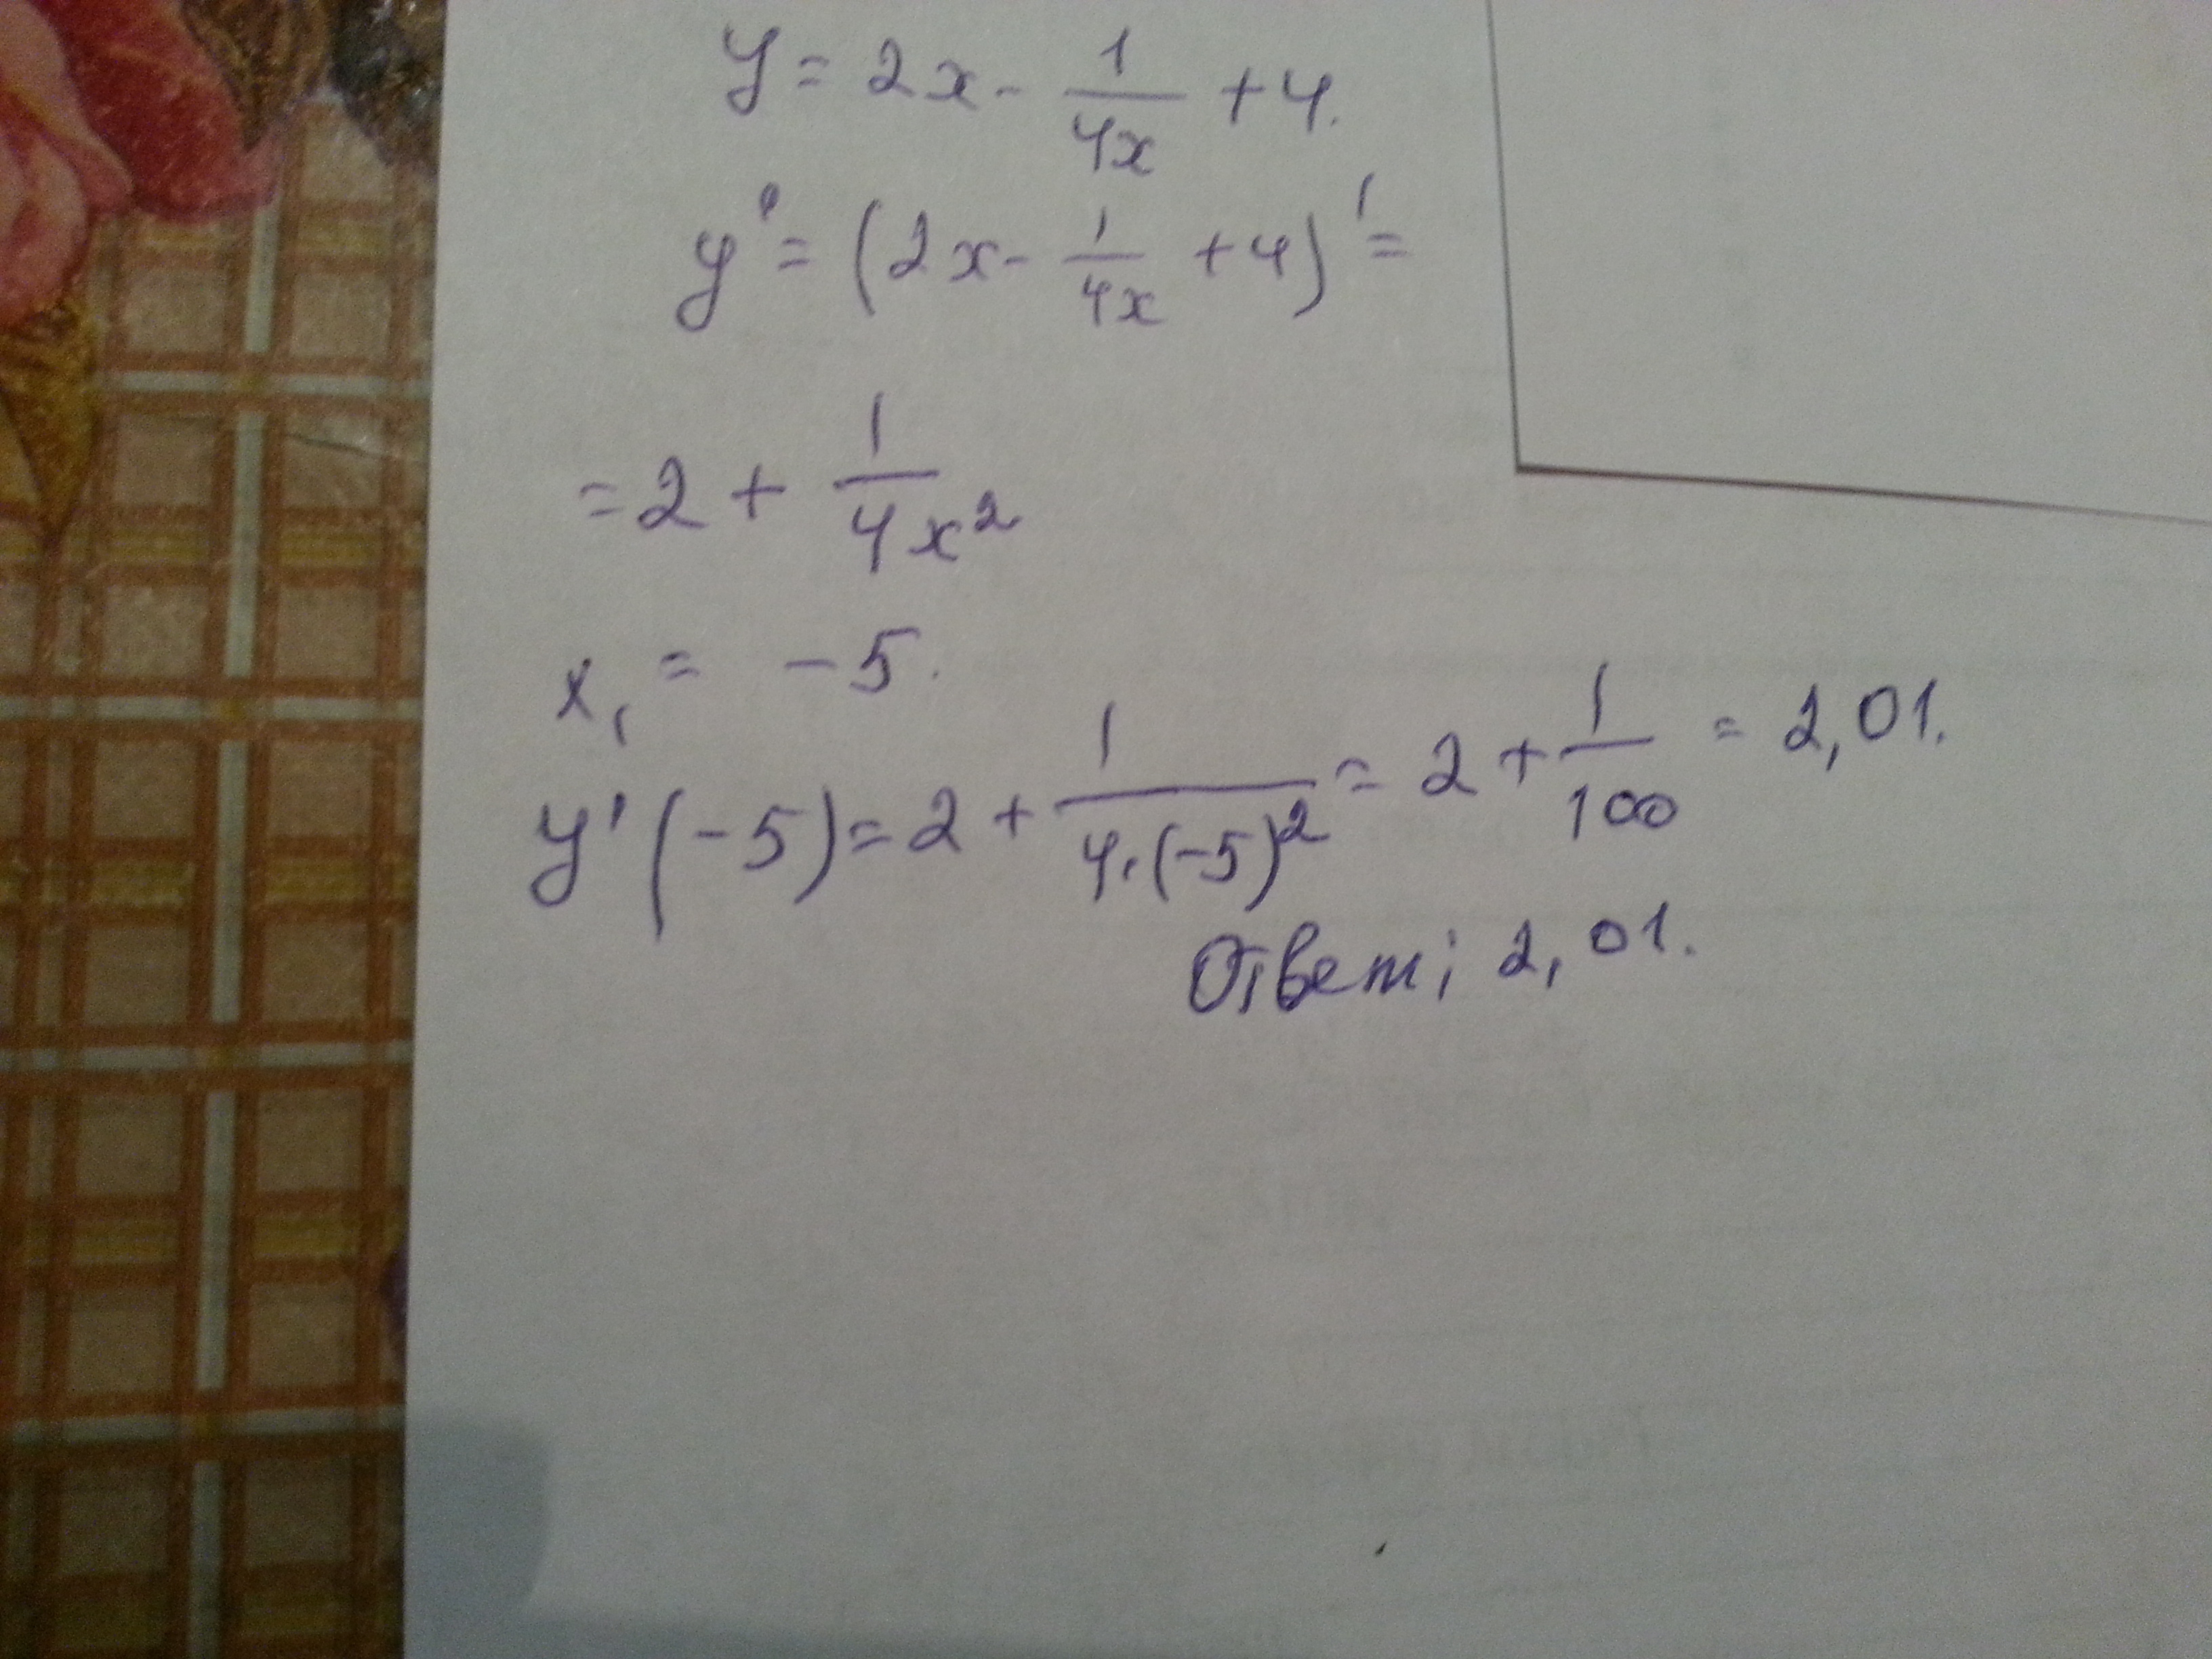 y = 2x - 1/4x + 4.
y' = (2x - 1/4x + 4)' =
= 2 + 1/4x²
x₁ = -5.
y'(-5) = 2 + 1/4·(-5)² = 2 + 1/100 = 2,01.
Ответ: 2,01.